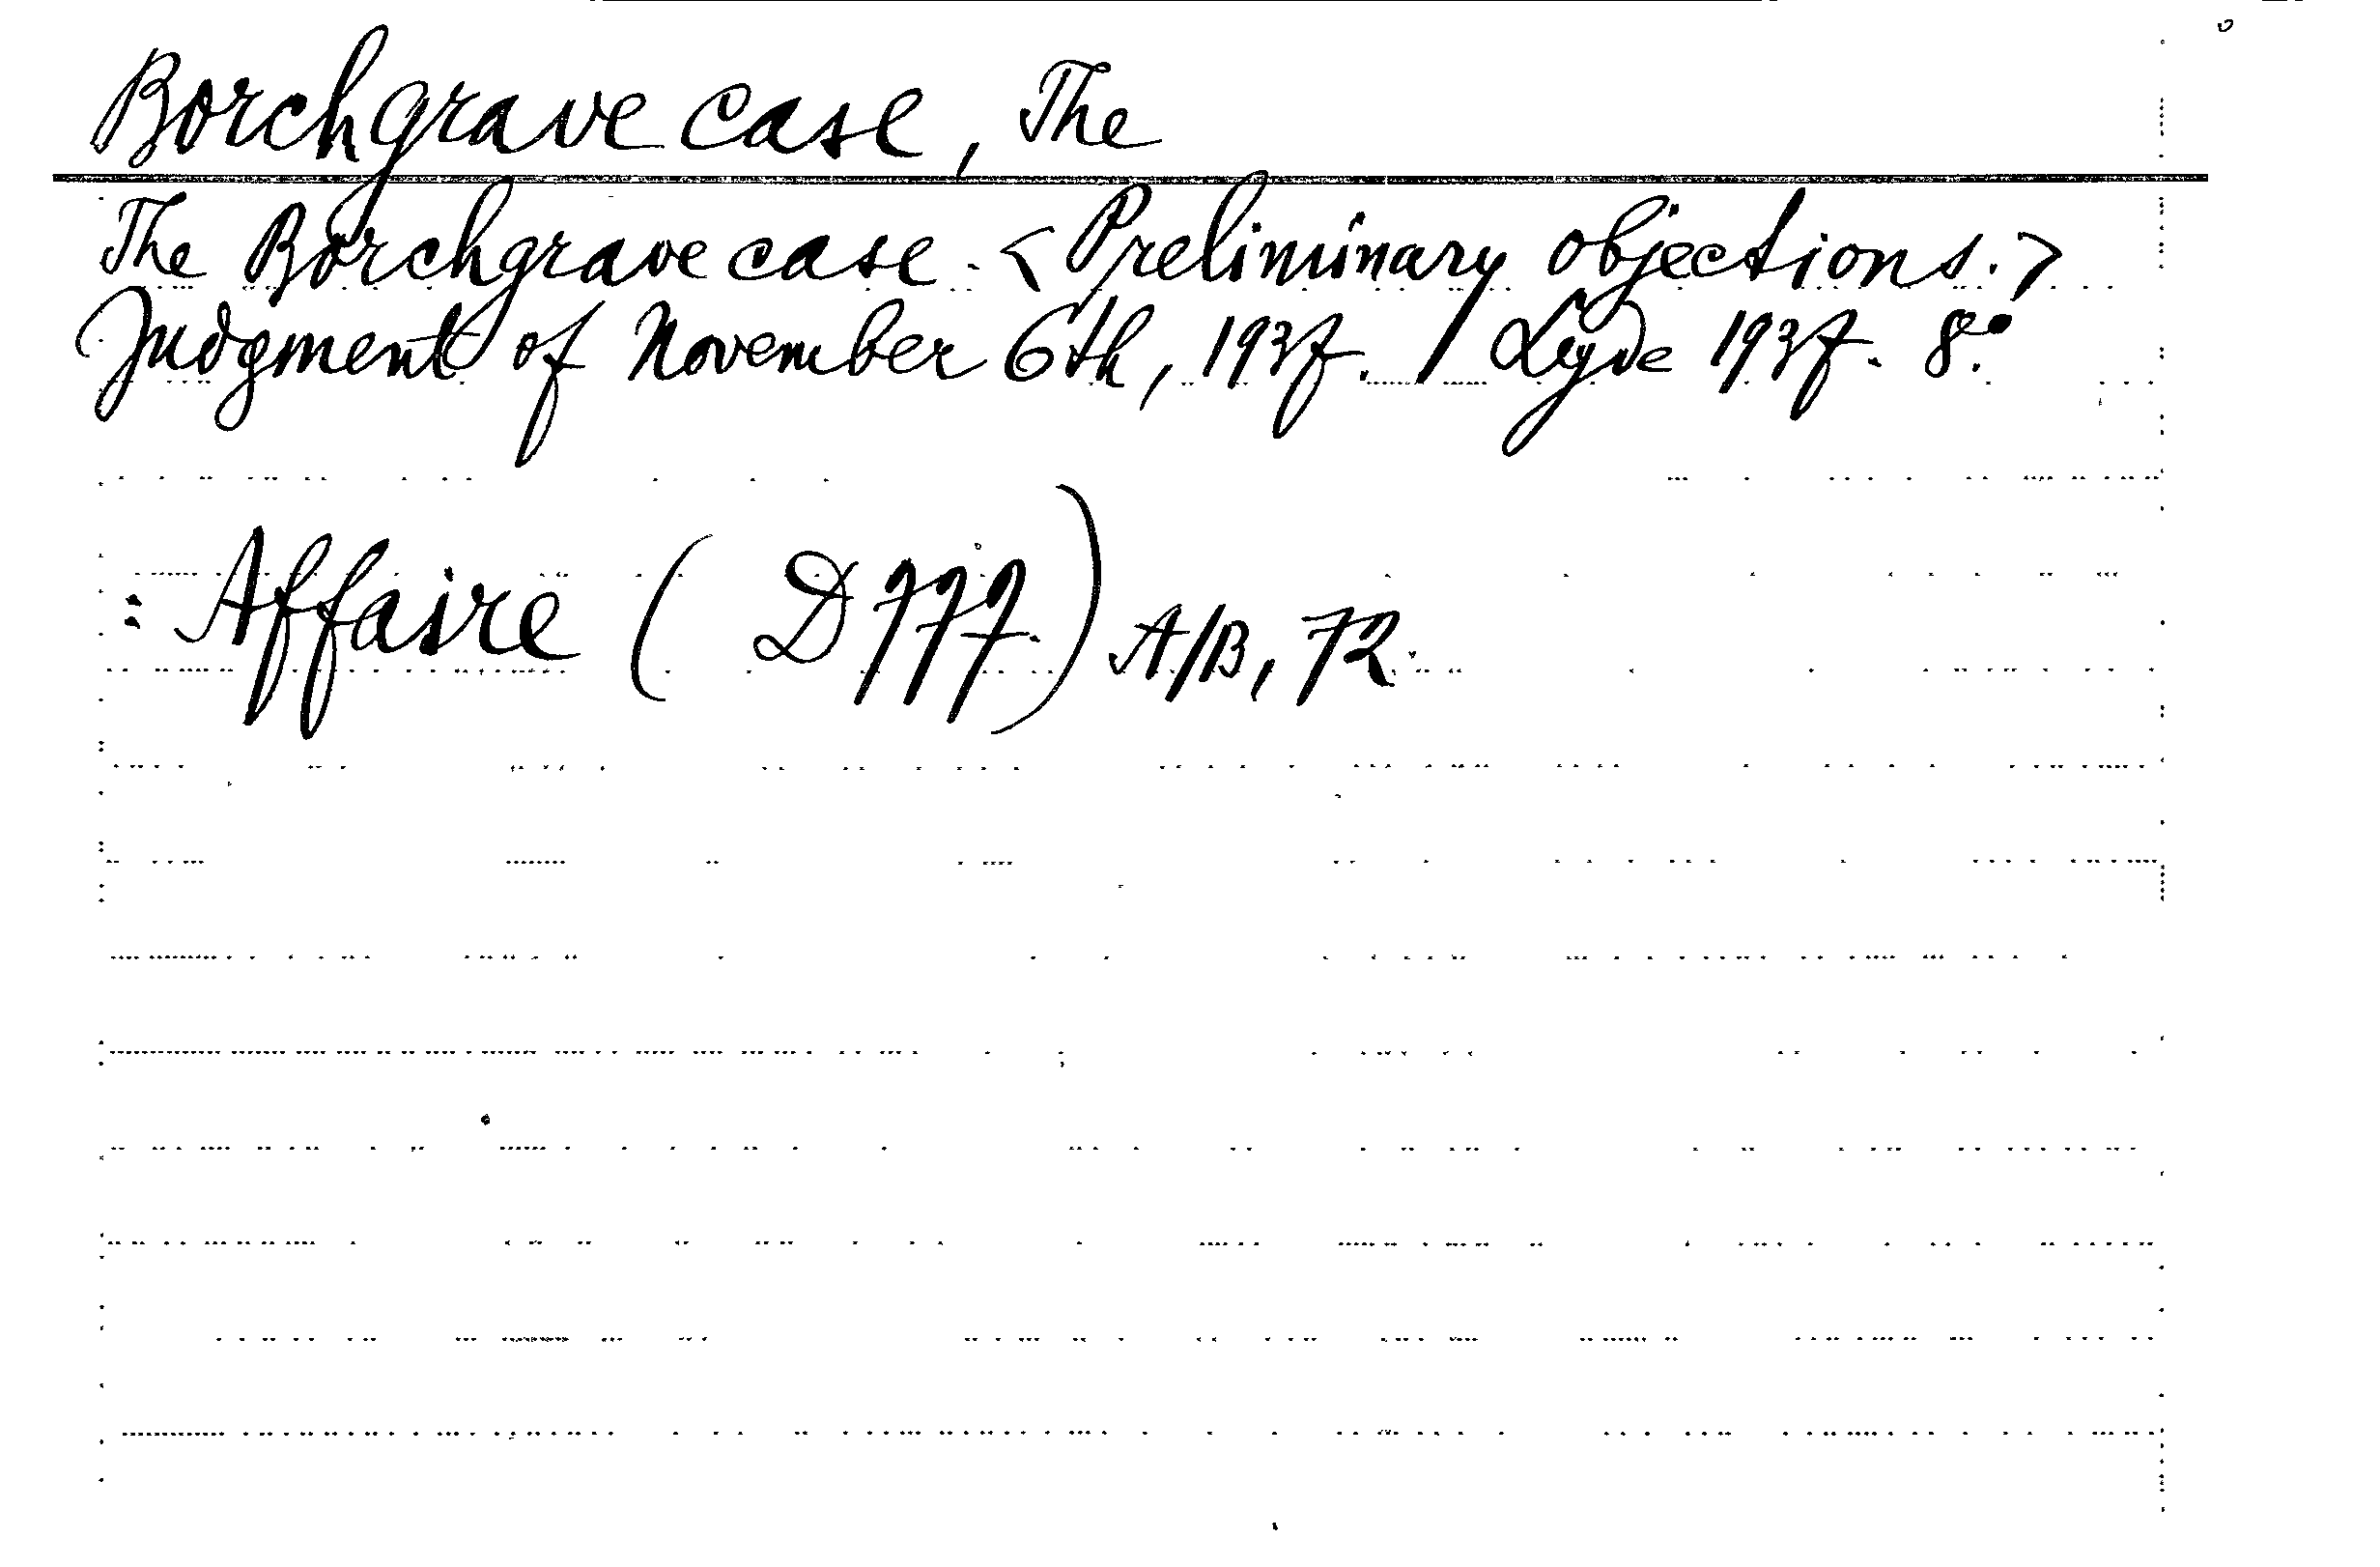 Borchgrave case, The
The Borchgrave case. <Preliminary objections.>
Judgment of November 6th, 1937. / Leyde 1937. 8°.
: Affaire ( D 777.) A/B, 72.